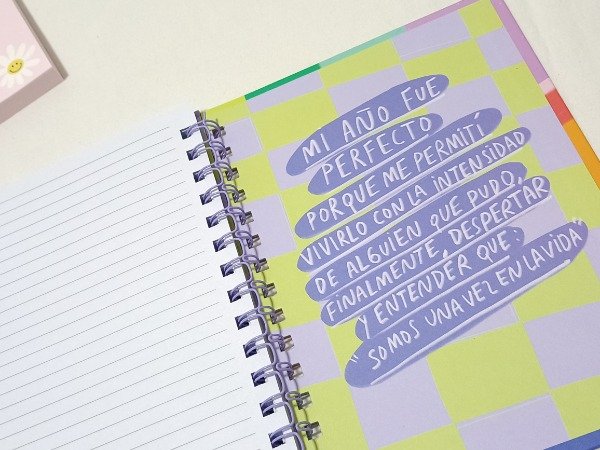 MI AÑO FUE
PERFECTO
PORQUE ME PERMITÍ
VIVIRLO CON LA INTENSIDAD
DE ALGUIEN QUE PUDO,
FINALMENTE, DESPERTAR
Y ENTENDER QUE:
"SOMOS UNA VEZ EN LA VIDA"